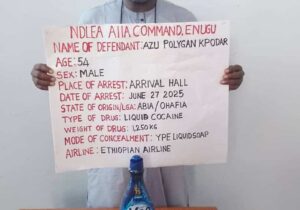 NDLEA AIIA COMMAND, ENUGU
NAME OF DEFENDANT: AZU POLYGAN KPODAR
AGE: 54
SEX: MALE
PLACE OF ARREST: ARRIVAL HALL
DATE OF ARREST: JUNE 27 2025
STATE OF ORIGIN/LGA: ABIA/OHAFIA
TYPE OF DRUG: LIQUID COCAINE
WEIGHT OF DRUG: 1.250KG
MODE OF CONCEALMENT: YPE LIQUIDSOAP
AIRLINE: ETHIOPIAN AIRLINE